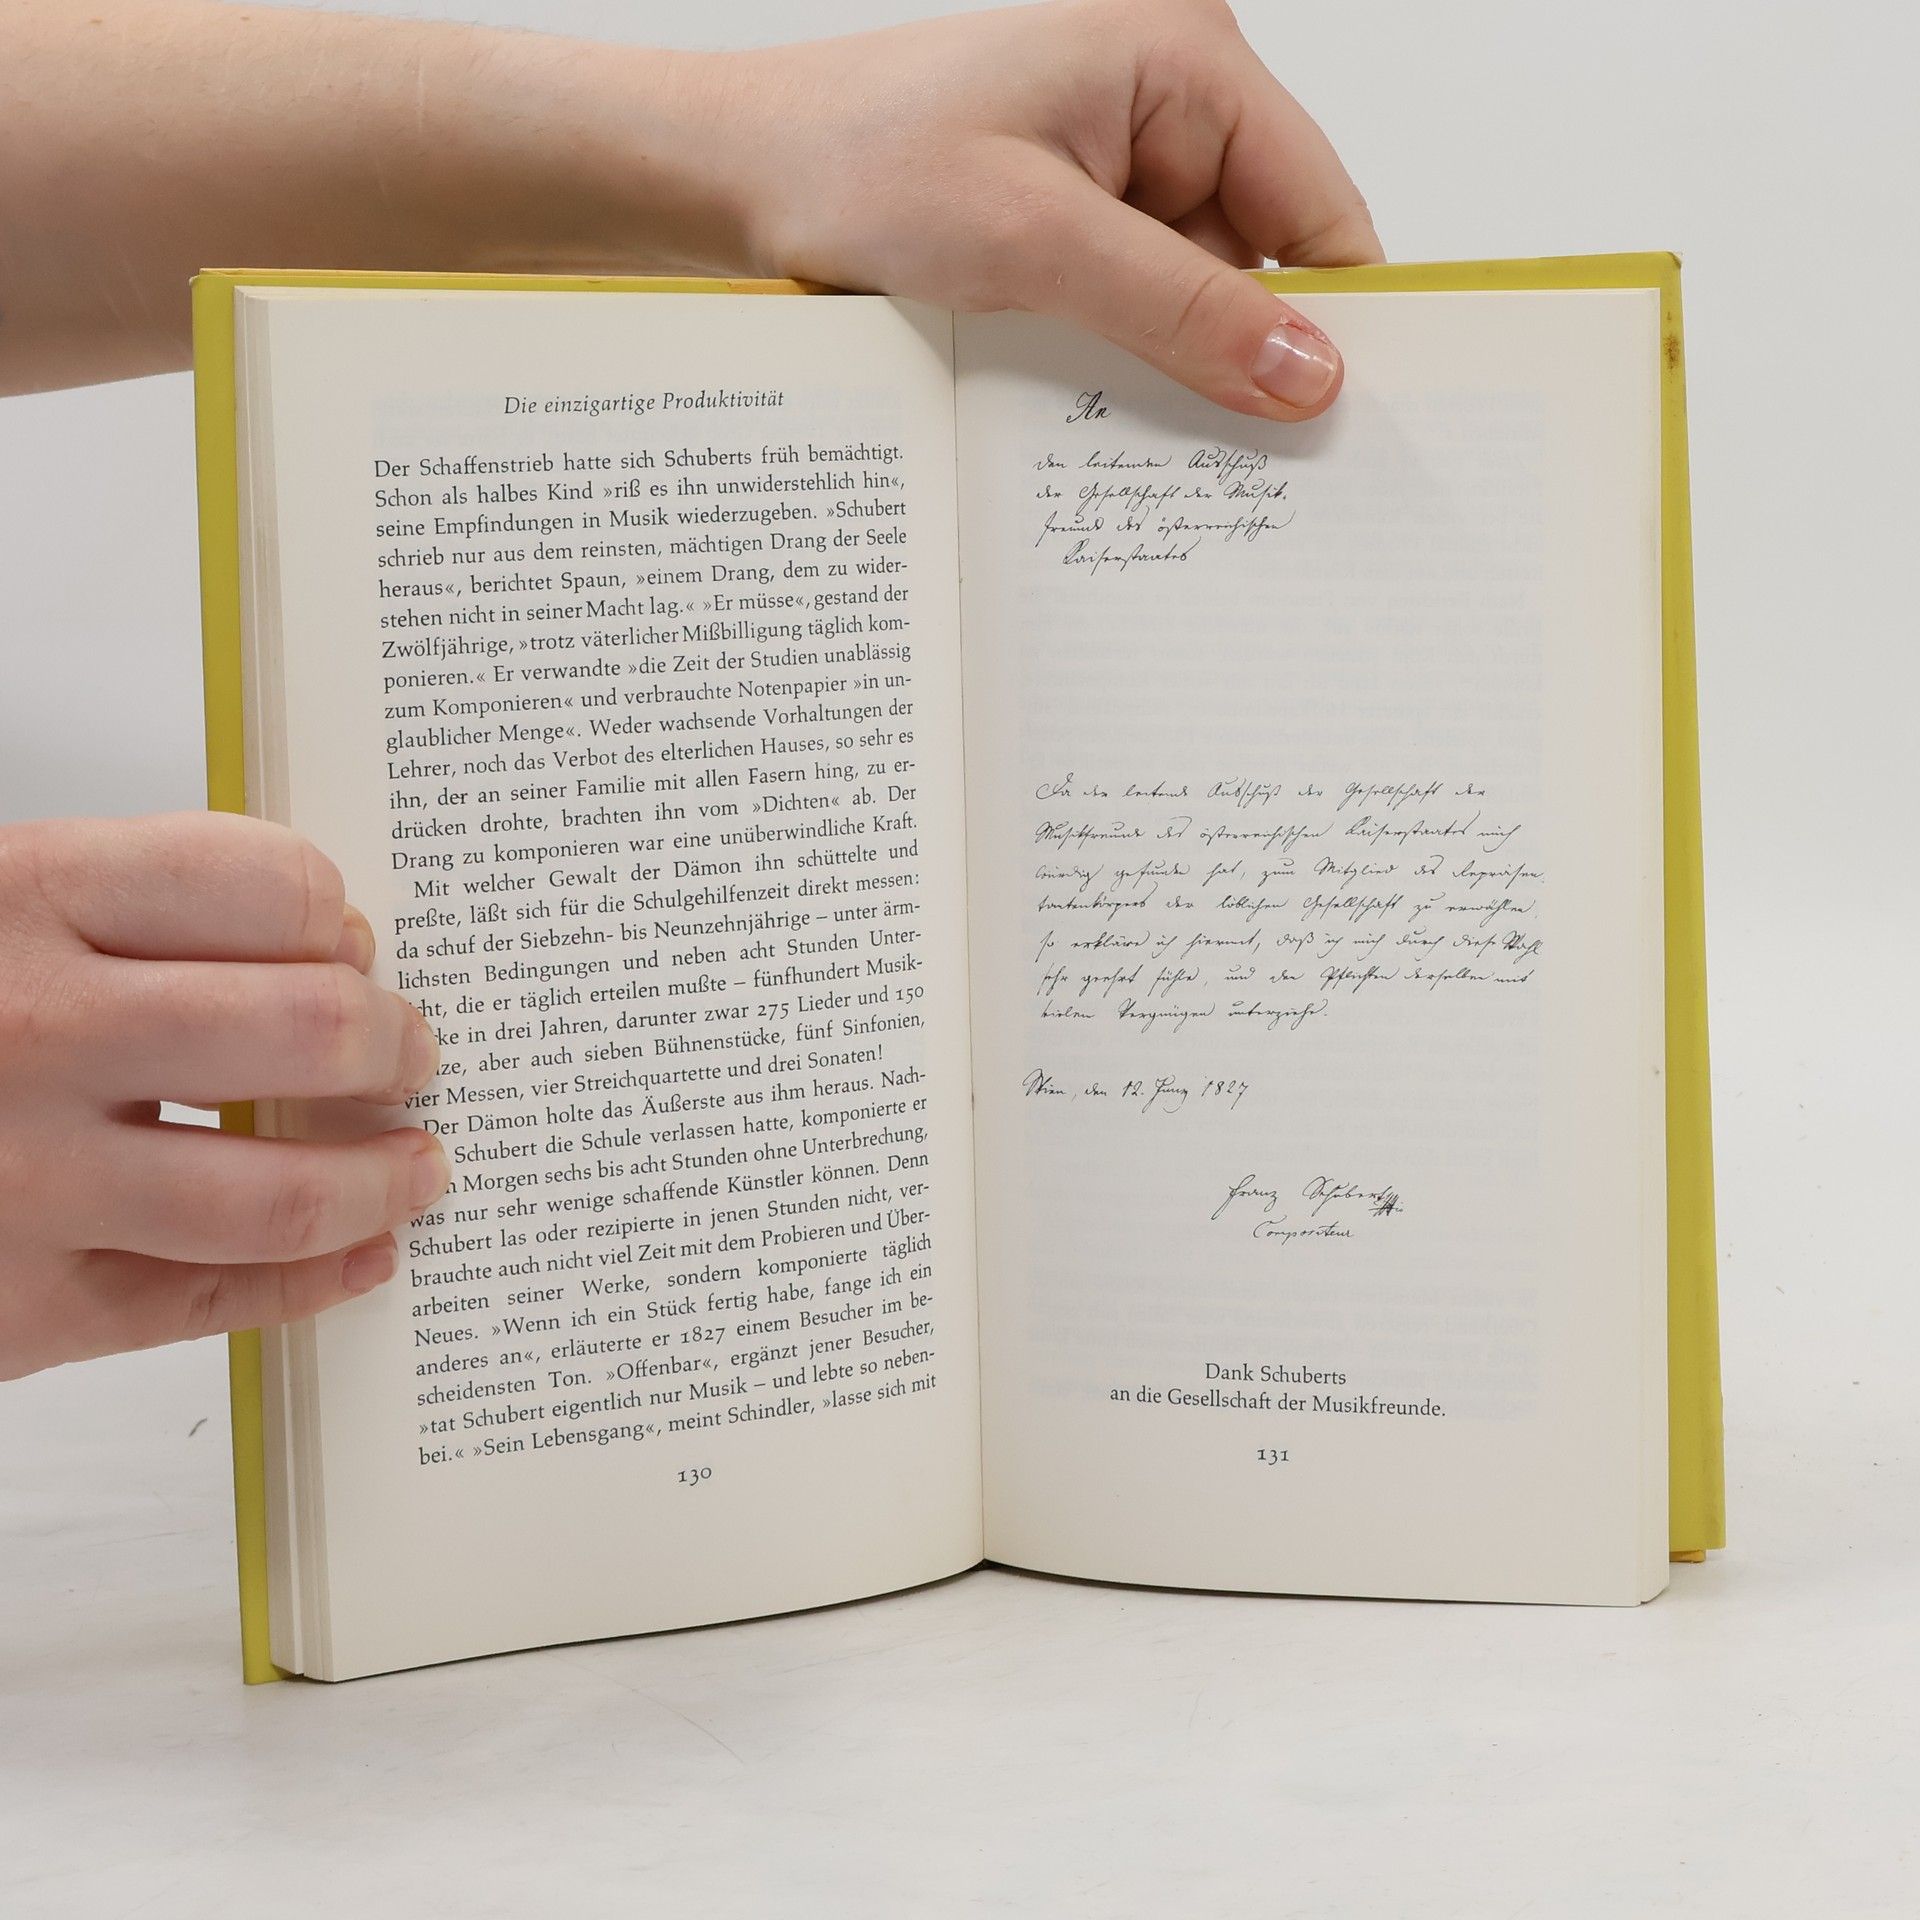 Die einzigartige Produktivität
Der Schaffenstrieb hatte sich Schuberts früh bemächtigt.
Schon als halbes Kind »riß es ihn unwiderstehlich hin«,
seine Empfindungen in Musik wiederzugeben. »Schubert
schrieb nur aus dem reinsten, mächtigen Drang der Seele
heraus«, berichtet Spaun, »einem Drang, dem zu wider-
stehen nicht in seiner Macht lag.« »Er müsse«, gestand der
Zwölfjährige, »trotz väterlicher Mißbilligung täglich kom-
ponieren.« Er verwandte »die Zeit der Studien unablässig
zum Komponieren« und verbrauchte Notenpapier »in un-
glaublicher Menge«. Weder wachsende Vorhaltungen der
Lehrer, noch das Verbot des elterlichen Hauses, so sehr es
ihn, der an seiner Familie mit allen Fasern hing, zu er-
drücken drohte, brachten ihn vom »Dichten« ab. Der
Drang zu komponieren war eine unüberwindliche Kraft.
Mit welcher Gewalt der Dämon ihn schüttelte und
preßte, läßt sich für die Schulgehilfenzeit direkt messen:
da schuf der Siebzehn- bis Neunzehnjährige – unter ärm-
lichsten Bedingungen und neben acht Stunden Unter-
cht, die er täglich erteilen mußte – fünfhundert Musik-
ke in drei Jahren, darunter zwar 275 Lieder und 150
ze, aber auch sieben Bühnenstücke, fünf Sinfonien,
vier Messen, vier Streichquartette und drei Sonaten!
Der Dämon holte das Äußerste aus ihm heraus. Nach-
Schubert die Schule verlassen hatte, komponierte er
n Morgen sechs bis acht Stunden ohne Unterbrechung,
was nur sehr wenige schaffende Künstler können. Denn
Schubert las oder rezipierte in jenen Stunden nicht, ver-
brauchte auch nicht viel Zeit mit dem Probieren und Über-
arbeiten seiner Werke, sondern komponierte täglich
Neues. »Wenn ich ein Stück fertig habe, fange ich ein
anderes an«, erläuterte er 1827 einem Besucher im be-
scheidensten Ton. »Offenbar«, ergänzt jener Besucher,
»tat Schubert eigentlich nur Musik – und lebte so neben-
bei.« »Sein Lebensgang«, meint Schindler, »lasse sich mit
130
An
den leitenden Ausschuß
der Gesellschaft der Musik-
freunde des österreichischen
Kaiserstaates
Da der leitende Ausschuß der Gesellschaft der
Musikfreunde des österreichischen Kaiserstaates mich
würdig gefunden hat, zum Mitglied des Repräsen-
tantenkörpers der löblichen Gesellschaft zu erwählen,
so erkläre ich hiermit, daß ich mich durch diese Wahl
sehr geehrt fühle, und den Pflichten derselben mit
vielem Vergnügen unterziehe.
Wien, den 12. Juny 1827
Franz Schubert
Compositeur
Dank Schuberts
an die Gesellschaft der Musikfreunde.
131